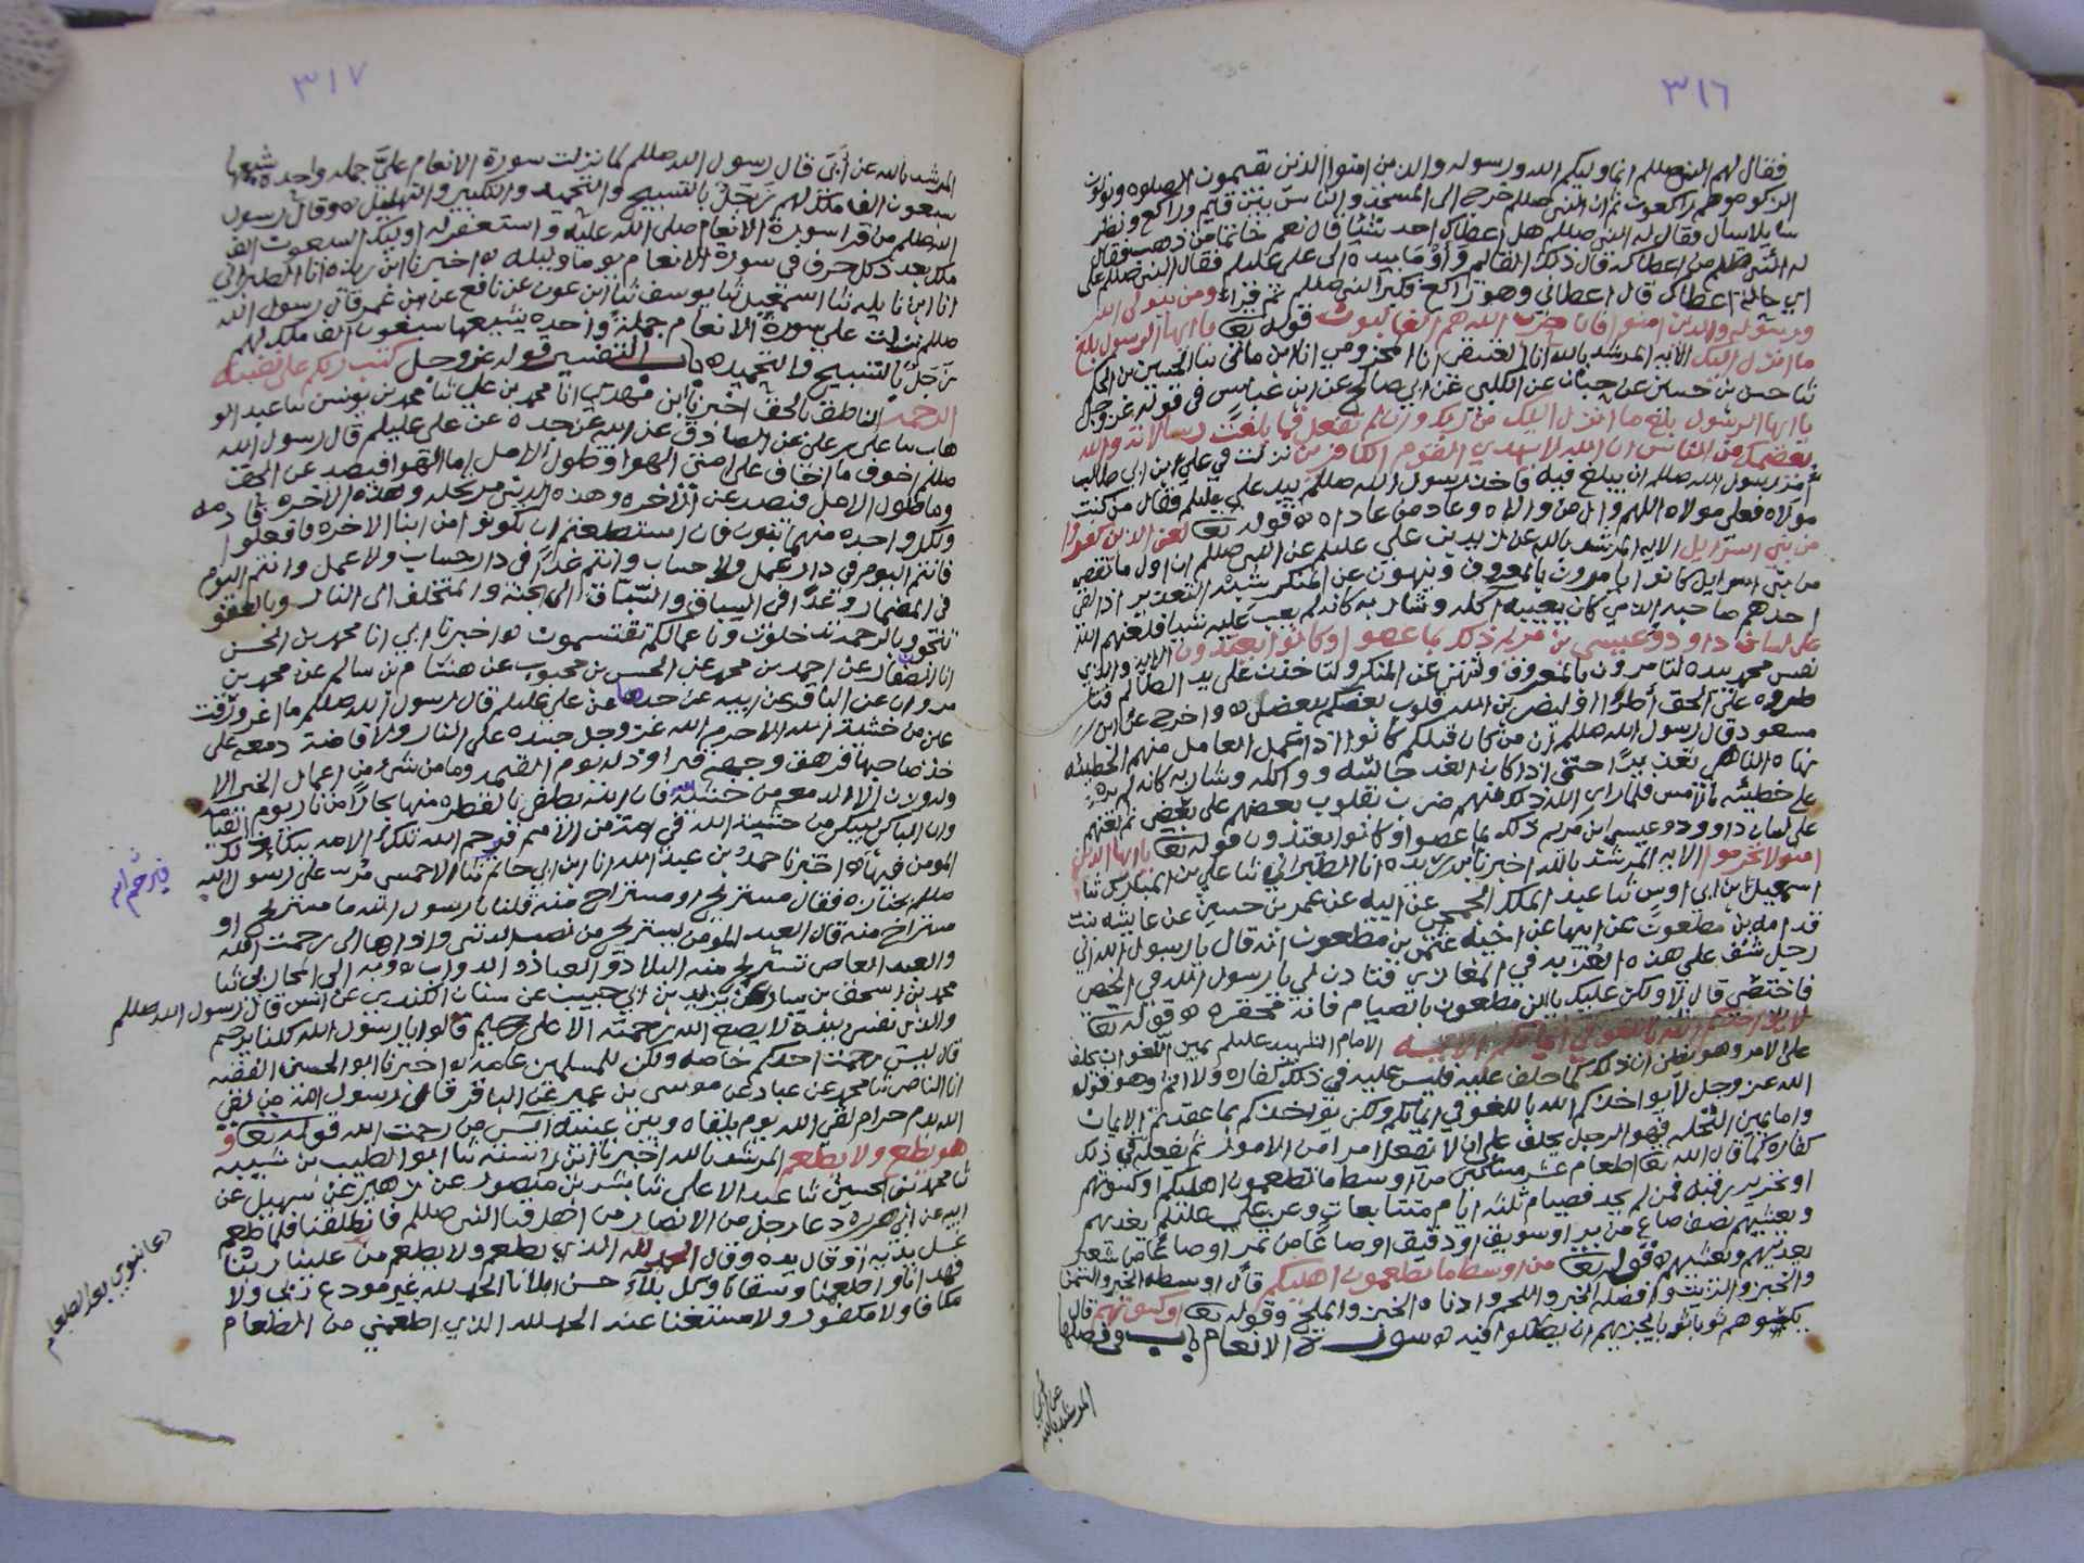 ٣١٦
فقال لهم النبي صللم انما وليكم الله ورسوله والذين امنوا الذين يقيمون الصلوه ويوتون
الزكوه وهم راكعون ثم ان النبي صللم خرج الى المسجد والناس بين قايم وراكع ونظر
سايلا سال فقال له النبي صللم هل اعطاك احد شيئا قال نعم خاتما من ذهب فقال
له النبي صللم من اعطاكه قال ذلك القايم واوما بيده الى علي عليلم فقال النبي صللم على
اي حاله اعطاك قال اعطاني وهو راكع فكبر النبي صللم ثم قرا ومن يتولى الله
ورسوله والذين امنوا فان حزب الله هم الغالبون قوله تعا يا ايها الرسول بلغ
ما انزل اليك الايه المرشد بالله انا العتيقي انا المخزومي انا ابن ماتي ثنا الحسين بن الحكم
ثنا حسن بن حسين عن حبان عن الكلبي عن ابي صالح عن ابن عباس في قوله عز وجل
يا ايها الرسول بلغ ما انزل اليك من ربك وان لم تفعل فما بلغت رسالاته والله
يعصمك من الناس ان الله لا يهدي القوم الكافرين نزلت في علي ابن ابي طالب
امر رسول الله صللم ان يبلغ فيه فاخذ رسول الله صللم بيد علي عليلم فقال من كنت
مولاه فعلي مولاه اللهم وال من والاه وعاد من عاداه ه قوله تعا لعن الذين كفروا
من بني اسرائيل الايه المرشد بالله عن زيد بن علي عليلم عن النبي صللم ان اول ما نقص
من بني اسرايل كانوا يامرون بالمعروف وينهون عن المنكر شبه التعذير اذا لقي
احدهم صاحبه الذي كان يعيبه اكله وشاربه كانه لم يعب عليه شيا فلعنهم الله
على لسان داوود وعيسى بن مريم ذلك بما عصوا وكانوا يعتدون الايه والذي
نفس محمد بيده لتامرون بالمعروف ولتنهن عن المنكر ولتاخذن على يد الظالم فتا
طروه على الحق أطرا او ليضربن الله قلوب بعضكم ببعض ه واخرج عن ابن
مسعود قال رسول الله صللم ان من كان قبلكم كانوا اذا عمل العامل منهم الخطيئه
نهاه الناهي تعذيرا حتى اذا كان الغد جالسه وواكله وشاربه كانه لم يره
على خطيئه بالامس فلما راى الله ذلك منهم ضرب بقلوب بعضهم على بعض ثم لعنهم
على لسان داوود وعيسى ابن مريم ذلك بما عصوا وكانوا يعتدون قوله تعا يا ايها الذين
امنوا لا تحرموا الايه المرشد بالله اخبرنا ابن ريذه انا الطبراني ثنا علي بن المبارك ثنا
اسمعيل بن ابي اويس ثنا عبد الملك الجمحي عن ابيه عن عمر بن حسين عن عايشه بنت
قدامه بن مظعون عن ابيها عن اخيه عثمن بن مظعون انه قال يا رسول الله اني
رجل شق علي هذه العزبه في المغازي فتاذن لي يا رسول الله في الخصي
فاختصي قال لا ولكن عليك يا ابن مظعون بالصيام فانه محفره ه قوله تعا
لا يواخذكم الله باللغو في ايمانكم الايه الامام الشهيد عليلم يمين اللغو ان يحلف
على الامر وهو يظن ان ذلك كما حلف عليه فليس عليه في ذلك كفاره ولا اثم وهو قول
الله عز وجل لا يواخذكم الله باللغو في ايمانكم ولكن يؤاخذكم بما عقدتم الايمان
واما يمين التحله فهو الرجل يحلف على ان لا يفعل امرا من الامور ثم يفعله ففي ذلك
كفاره كما قال الله تعا اطعام عشره مساكين من اوسط ما تطعمون اهليكم او كسوتهم
او تحرير رقبه فمن لم يجد فصيام ثلثه ايام متتابعات وعن علي عليلم يغديهم
ويعشيهم نصف صاع من بر او سويق او دقيق او صاعا من تمر او صاعا من شعير
يغديهم ويعشيهم ه قوله تعا من اوسط ما تطعمون اهليكم قال اوسطه الخبز والسمن
والخبز والزيت وافضله الخبز واللحم وادناه الخبز والملح وقوله تعا او كسوتهم قال
يكسوهم ثوبا ثوبا يجزيهم ان يصلوا فيه ه سورة الانعام باب في فضلها
المرشد بالله
٣١٧
المرشد بالله عن أبَيّ قال رسول الله صللم لما نزلت سورة الانعام عليّ جمله واحده شيعها
سبعون الف ملك لهم زجل بالتسبيح والتحميد والتكبير والتهليل ه وقال رسول
الله صللم من قرا سورة الانعام صلى الله عليه واستغفر له اوليك السبعون الف
ملك بعدد كل حرف في سورة الانعام يوما وليله ه اخبرنا ابن ريذه انا الطبراني
انا ابن نايله ثنا اسمعيل ثنا يوسف ثنا ابن عون عن نافع عن ابن عمر قال رسول الله
صللم نزلت علي سورة الانعام جملة واحده يشيعها سبعون الف ملك لهم
زجل بالتسبيح والتحميد ه باب التفسير قوله عز وجل كتب ربكم على نفسه
الرحمه الناطق بالحق اخبرنا ابن مهدي انا محمد بن علي ثنا محمد بن يونس ثنا عبد الو
هاب ثنا علي بن علي عن الصادق عن ابيه عن جده عن علي عليلم قال رسول الله
صللم اخوف ما اخاف على امتي الهوا وطول الامل اما الهوا فيصد عن الحق
وما طول الامل فيصد عن الاخره وهذه الدنيا مرتحله وهذه الاخره قادمه
ولكل واحده منهما بنون فان استطعتم ان تكونوا من ابنا الاخره فافعلوا
فانتم اليوم في دار عمل ولا حساب وانتم غدا في دار حساب ولا عمل وانتم اليوم
في المضمار وغدا في السباق والسباق الى الجنه والمتخلف الى النار وبالعفو
تنجون وبالرحمه تدخلون وباعمالكم تقتسمون ه اخبرنا ابي انا محمد بن الحسن
انا الصفار عن احمد بن محمد عن الحسن بن محبوب عن هشام بن سالم عن محمد بن
مروان عن الباقر عن ابيه عن جده عن علي عليلم قال رسول الله صللم ما اغرورقت
عين من خشية الله الا حرم الله عز وجل جسده على النار ولا فاضت دمعه على
خد صاحبها فرهق وجهه قتر او ذله يوم القيمه وما من شيء من اعمال الخير الا
وله وزن الا الدمعه من خشية الله فان الله يطفي بالقطره منها بحارا من نار يوم القيامه
وان الباكي ليبكي من خشية الله في امة من الامم فيرحم الله تلك الامه ببكاء ذلك
المومن فيها ه اخبرنا حمد بن عبد الله انا ابن ابي حاتم ثنا الاحمسي مُر على رسول الله
صللم بجنازه فقال مستريح او مستراح منه قلنا يا رسول الله ما مستريح او
مستراح منه قال العبد المومن يستريح من نصب الدنيا واذاها الى رحمت الله
والعبد العاصي تستريح منه البلاد والعباد والدواب ه وبه الى المحاربي ثنا
محمد بن اسحق بن يسار عن يزيد بن ابي حبيب عن سنان الكندي عن انس قال رسول الله صللم
والذي نفسي بيده لا يضع الله رحمته الا على رحيم قالوا يا رسول الله كلنا يرحم
قال ليس برحمت احدكم خاصه ولكن للمسلمين عامه ه اخبرنا ابو الحسين الفقيه
انا الناصر ثنا محمد عن عباد عن موسى بن عمير عن الباقر قال رسول الله من لقي
الله بدم حرام لقي الله يوم يلقاه وبين عينيه آيس من رحمت الله قوله تعا و
هو يطعم ولا يطعم المرشد بالله اخبرنا ابن السنه ثنا ابو الطيب بن شيبه
ثنا محمد بن الحسين ثنا عبد الاعلى ثنا بشر بن منصور عن زهير عن سهيل عن
ابيه عن ابي هريره دعا رجل من الانصار من اهل قبا النبي صللم فانطلقنا فلما طعم
غسل يديه او قال يده وقال الحمد لله الذي يطعم ولا يطعم من علينا ربنا
فهدانا واطعمنا وسقانا وكل بلاء حسن ابلانا الحمد لله غير مودع ربي ولا
مكافا ولا مكفور ولا مستغنا عنه الحمد لله الذي اطعمني من الطعام
فيرحم الله
دعا نبوي بعد الطعام